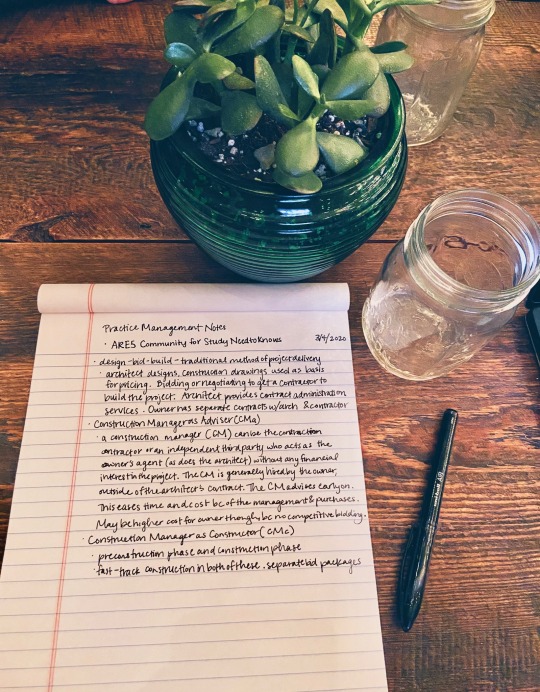 Practice Management Notes
· ARE5 Community for Study Need to Knows 3/4/2020
· design-bid-build - traditional method of project delivery
· architect designs, construction drawings used as basis
for pricing. Bidding or negotiating to get a contractor to
build the project. Architect provides contract administration
services. Owner has separate contracts w/arch & contractor
· Construction Manager as Adviser (CMa)
· a construction manager (CM) can be the contractor
contractor or an independent third party who acts as the
owner's agent (as does the architect) without any financial
interest in the project. The CM is generally hired by the owner,
outside of the architect's contract. The CM advises early on.
This eases time and cost bc of the management & purchases.
May be higher cost for owner though bc no competitive bidding.
· Construction Manager as Constructor (CMc)
· preconstruction phase and construction phase
· fast-track construction in both of these. separate bid packages